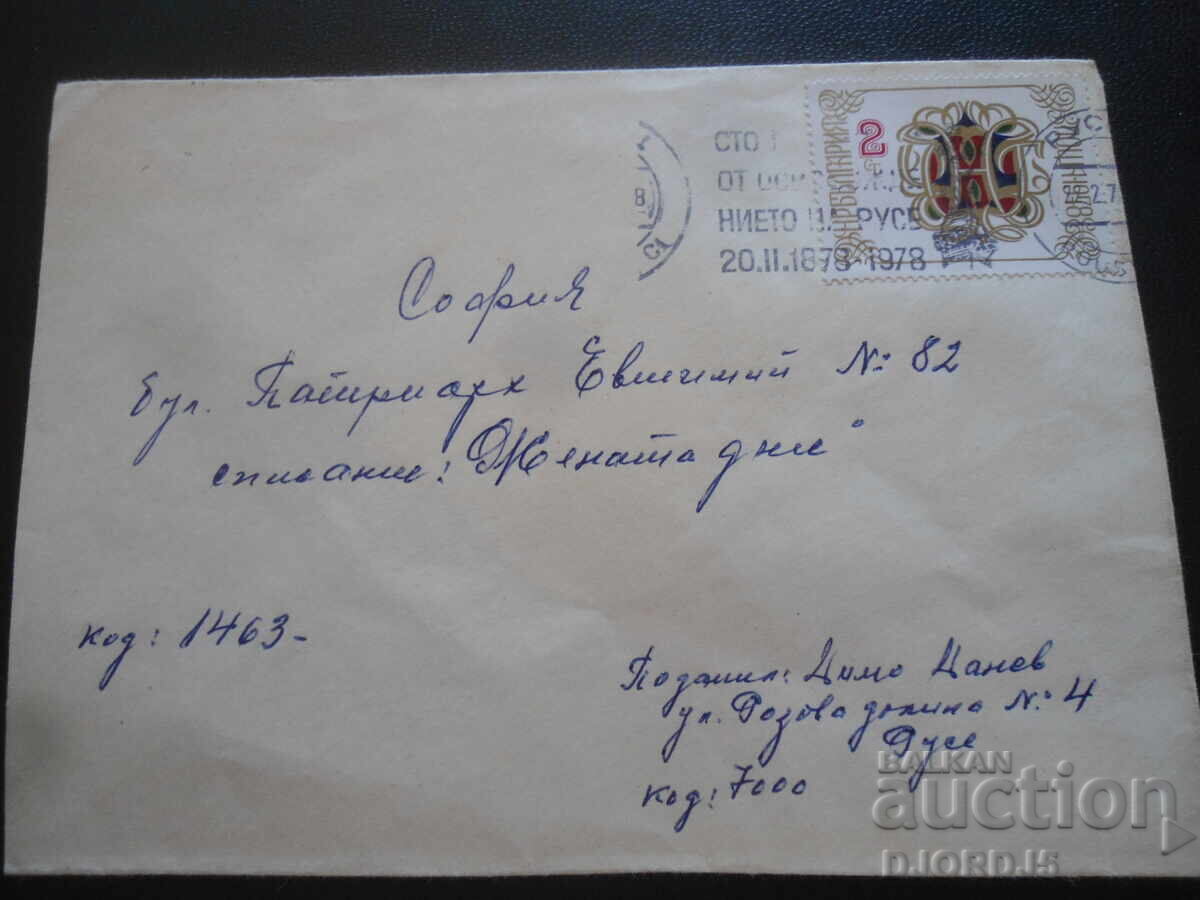 СТО
ОТ ОСВОБОЖДА
НИЕТО НА РУСЕ
20.II.1878-1978
НР БЪЛГАРИЯ
2
ПОЩА
София
бул. Патриарх Евтимий №: 82
списание: „Жената днес"
код: 1463-
Подател: Димо Цанев
ул. Розова долина №: 4
Русе
код: 7000
BALKAN
auction
D.JORD.J5